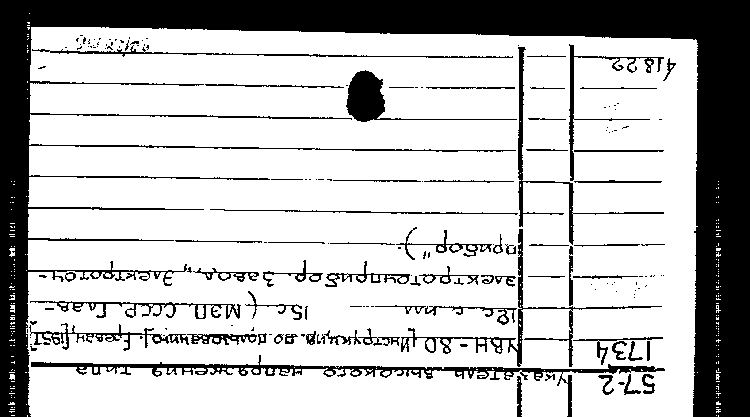 57-2 Указатель высокого напряжения типа
1734 УВН-80 [Инструкция по пользованию]. Ереван, [1951]
12с. с илл 15с (МЭП СССР. Глав-
электроточприбор. Завод „Электроточ-
прибор").
41822